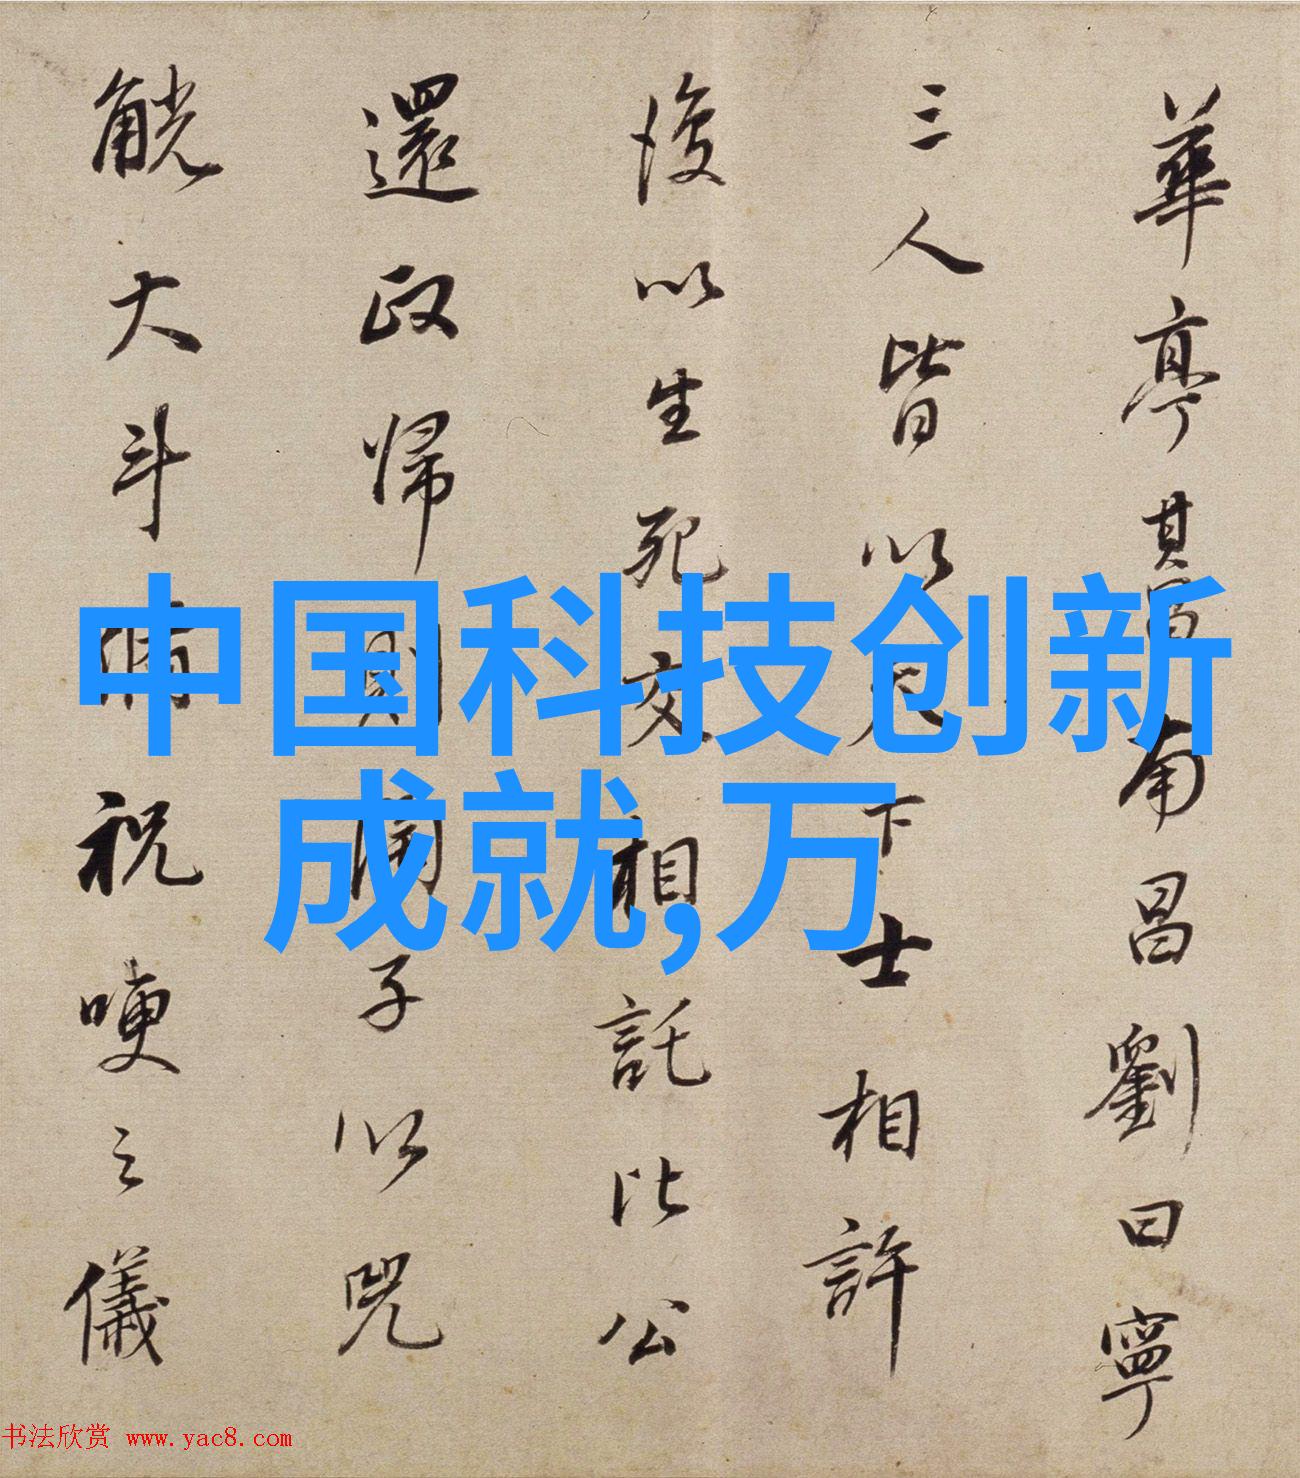 中国科技创新
成就,万
華亭其南昌劉曰寧
三人皆以天下士相許
後以生死交相託比公
還政歸則子以兕
觥大斗祝哽之儀
书法欣赏 www.yac8.com